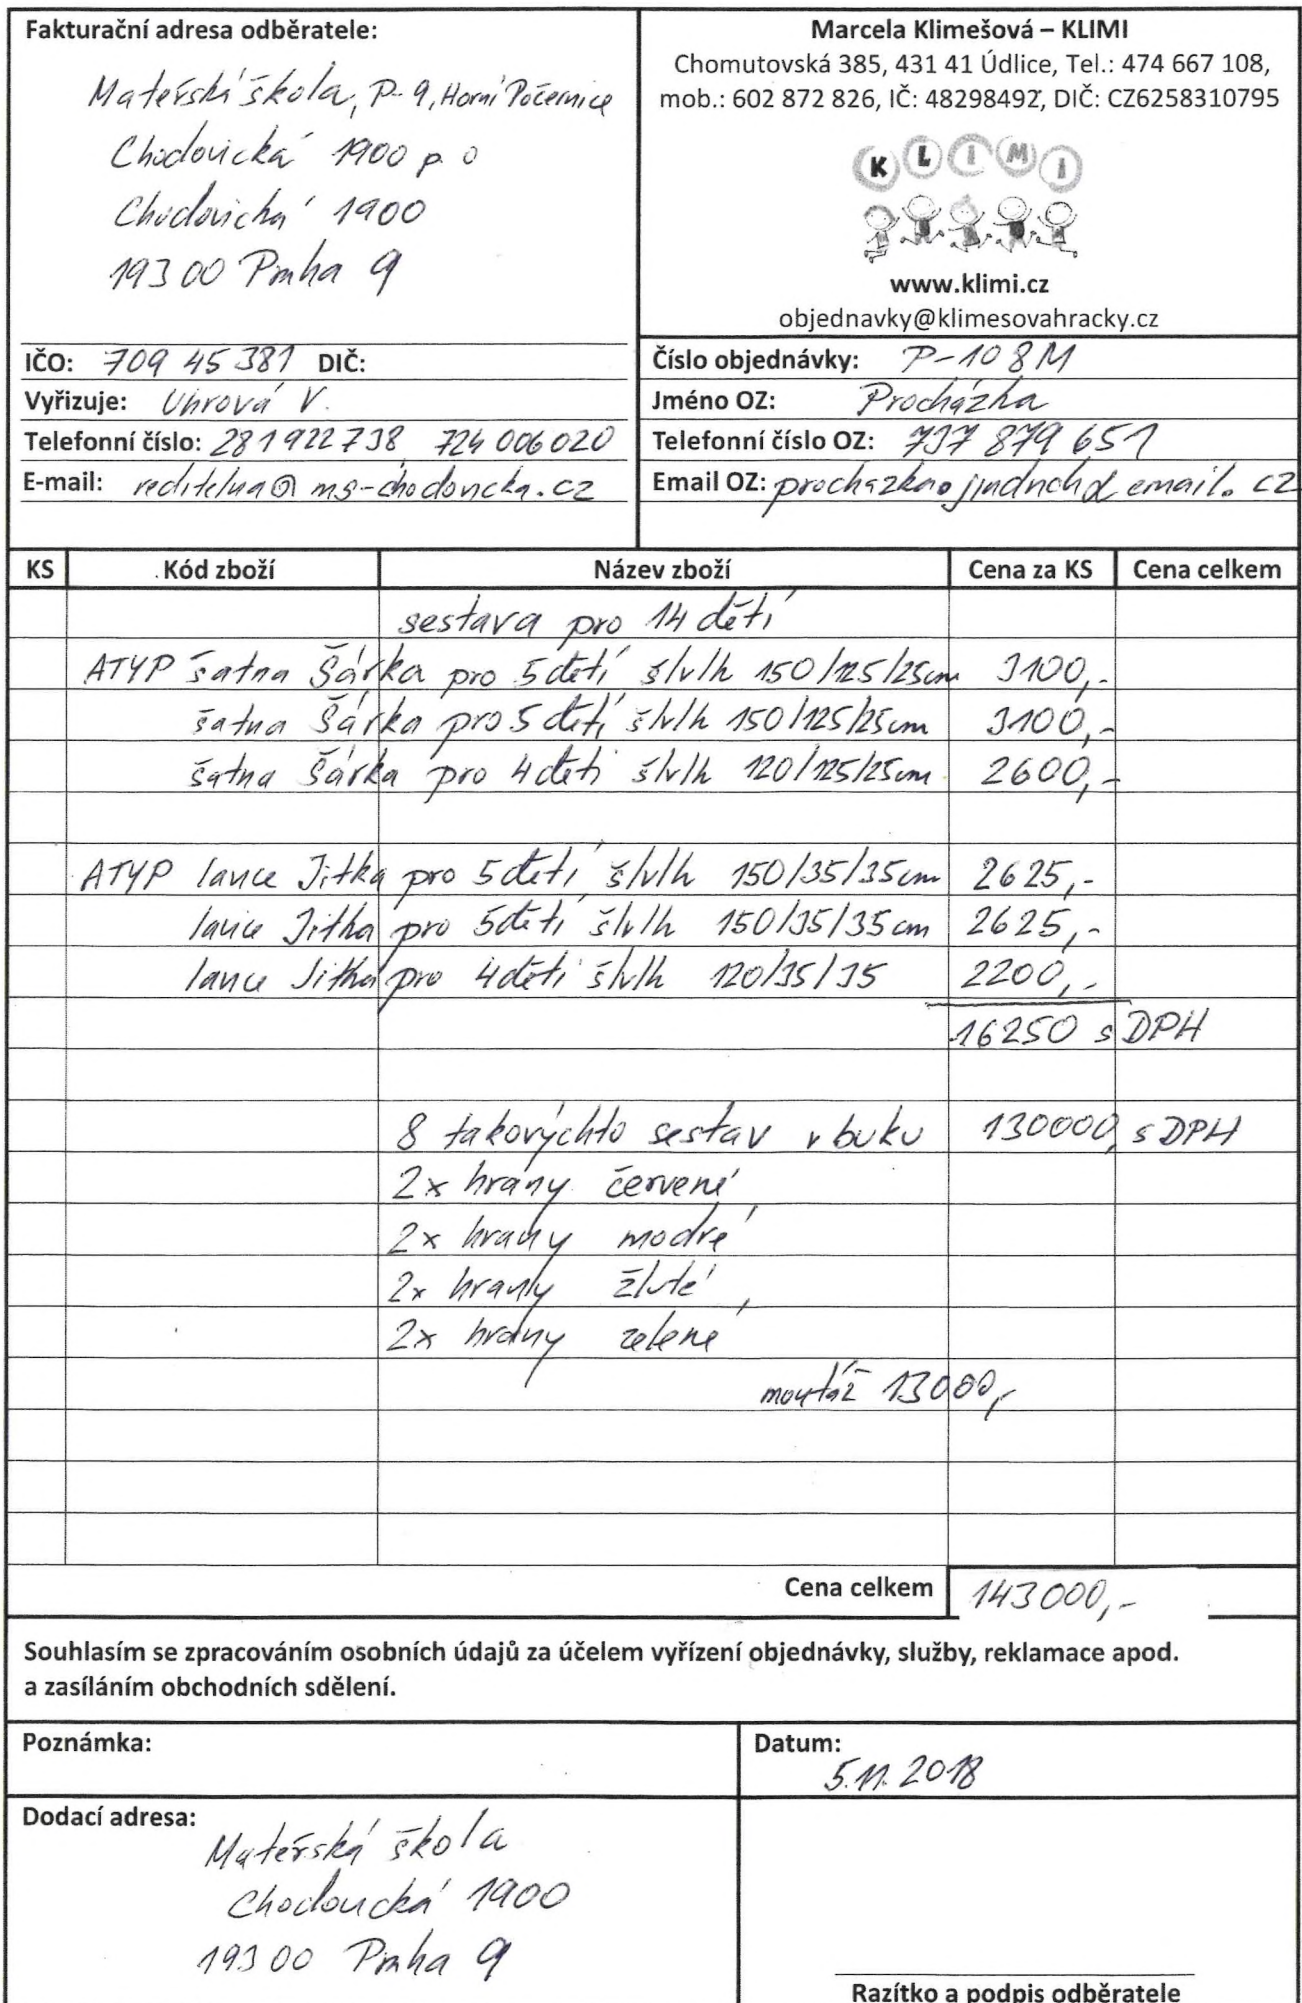 Fakturační adresa odběratele:
Mateřská škola, P-9, Horní Počernice
Chodovická 1900 p. o
Chodovická 1900
193 00 Praha 9
IČO: 709 45 381 DIČ:
Vyřizuje: Uhrová V.
Telefonní číslo: 281 922 738, 724 006 020
E-mail: reditelna@ms-chodovicka.cz
Marcela Klimešová – KLIMI
Chomutovská 385, 431 41 Údlice, Tel.: 474 667 108,
mob.: 602 872 826, IČ: 48298492, DIČ: CZ6258310795
KLIMI
www.klimi.cz
objednavky@klimesovahracky.cz
Číslo objednávky: P-108M
Jméno OZ: Procházka
Telefonní číslo OZ: 737 879 651
Email OZ: prochazka.jindrich@email.cz
KS Kód zboží Název zboží Cena za KS Cena celkem
sestava pro 14 dětí
ATYP šatna Šárka pro 5 dětí š/v/h 150/125/25cm 3100,-
šatna Šárka pro 5 dětí š/v/h 150/125/25cm 3100,-
šatna Šárka pro 4 děti š/v/h 120/125/25cm 2600,-
ATYP lavice Jitka pro 5 dětí š/v/h 150/35/35cm 2625,-
lavice Jitka pro 5 dětí š/v/h 150/35/35cm 2625,-
lavice Jitka pro 4 děti š/v/h 120/35/35 2200,-
16250 s DPH
8 takovýchto sestav v buku 130000, s DPH
2x hrany červené
2x hrany modré
2x hrany žluté
2x hrany zelené
montáž 13000,-
Cena celkem 143000,-
Souhlasím se zpracováním osobních údajů za účelem vyřízení objednávky, služby, reklamace apod.
a zasíláním obchodních sdělení.
Poznámka:
Datum:
5.11.2018
Dodací adresa:
Mateřská škola
Chodovická 1900
193 00 Praha 9
Razítko a podpis odběratele